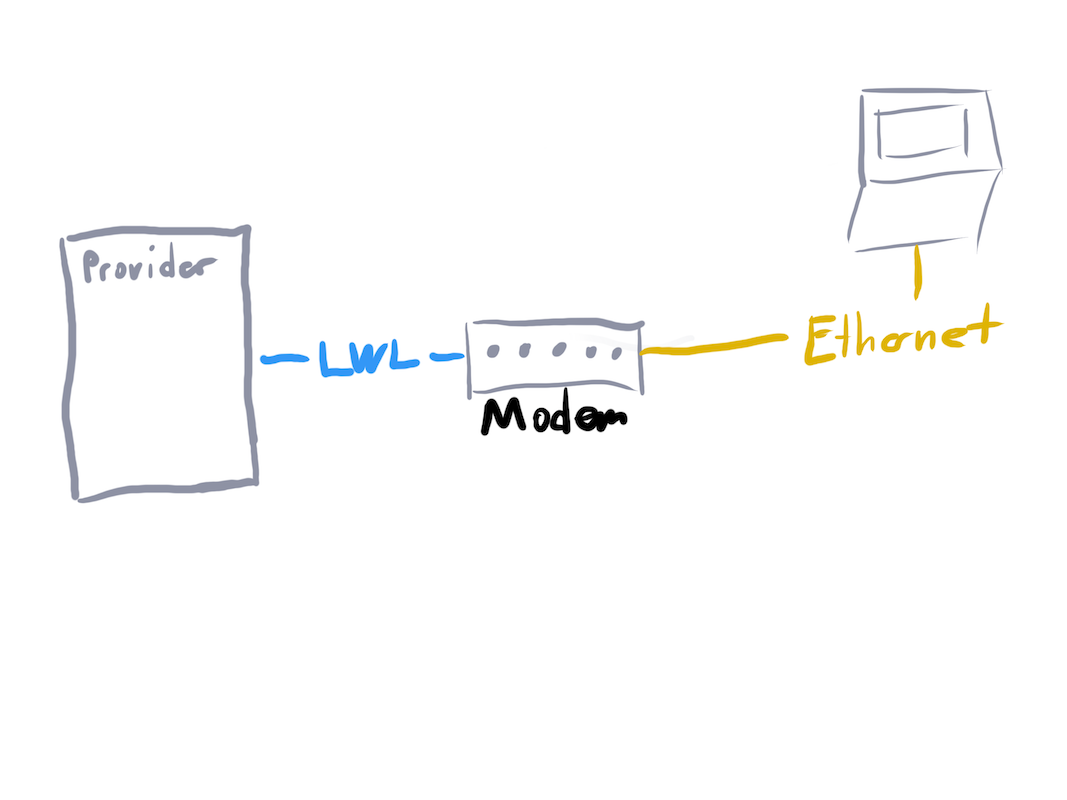 Provider
LWL
Modem
Ethernet